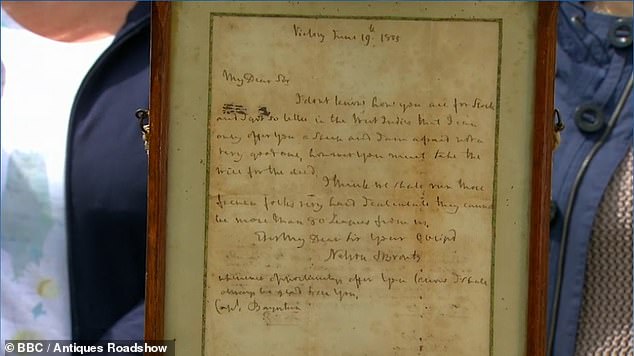 Victory June 19th 1805
My Dear Sir
I dont know how you are for Stock
and I got so little in the West Indies that I can
only offer you a Sheep and I am afraid not a
very good one, however you must take the
will for the deed.
I think we shall run these
french folks very hard I calculate they cannot
be more than 80 Leagues from us,
Ever My Dear Sir Your Obliged
Nelson & Bronte
whenever opportunity offer you know I shall
always be glad to see you,
Capt. Bayntun
© BBC / Antiques Roadshow